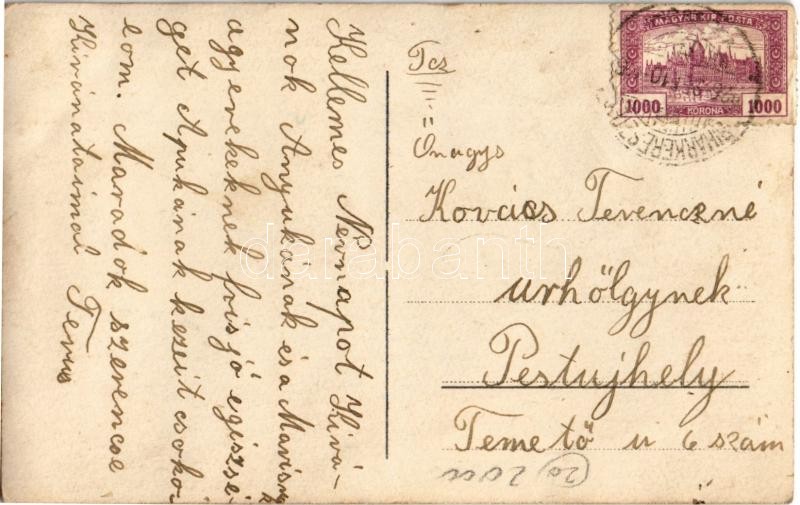 Kellemes Nevnapot Kivá-
nok Anyukának és a Marisnak
a gyerekeknek friss jó egiszsé-
get Apukának kezeit csoko-
lom. Maradok szerencse
Kivánataimal Terus
Tcs
Önagys
Kovács Ferenczné
urhölgynek
Pestujhely
Temető u 6 szám
MAGYAR KIR. POSTA
1000
KORONA
1000
BIHARKERESZTES
darabanth